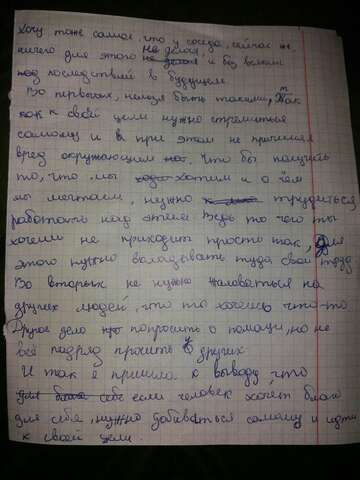 Хочу тоже самое, что у соседа, сейчас и
ничего для этого не делая, и без всяких
последствий в будущем.
Во первых, нельзя быть такими, так
как к своей цели нужно стремиться
самому и в при этом не причиняя
вред окружающим. Что бы получить
то, что мы хотим и о чём
мы мечтаем, нужно трудиться,
работать над этим. Ведь то чего ты
хочешь не приходит просто так, для
этого нужно вкладывать туда свой труд.
Во вторых не нужно жаловаться на
других людей, что ты хочешь что-то
Другое дело попросить о помощи, но не
всё подряд просить у других.
И так я пришла к выводу что
себе если человек хочет блага
для себя, нужно добиваться самому и идти
к своей цели.